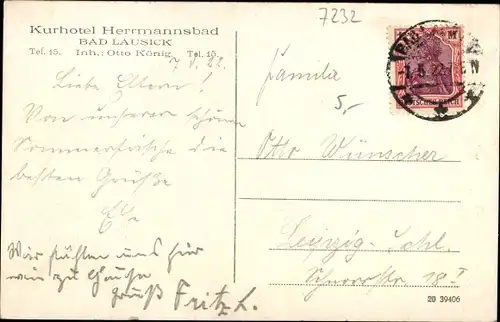 Kurhotel Herrmannsbad
BAD LAUSICK
Tel. 15. Inh.: Otto König. Tel. 15.
7.V.22.
Liebe Eltern!
Von unserer schönen
Sommerfrische die
besten Grüße
Wir fühlen uns hier
wie zu Hause
Gruß Fritz L.
7232
5,-
Familie
Otto Wünscher
Leipzig-Schl.
18 I
20 39406